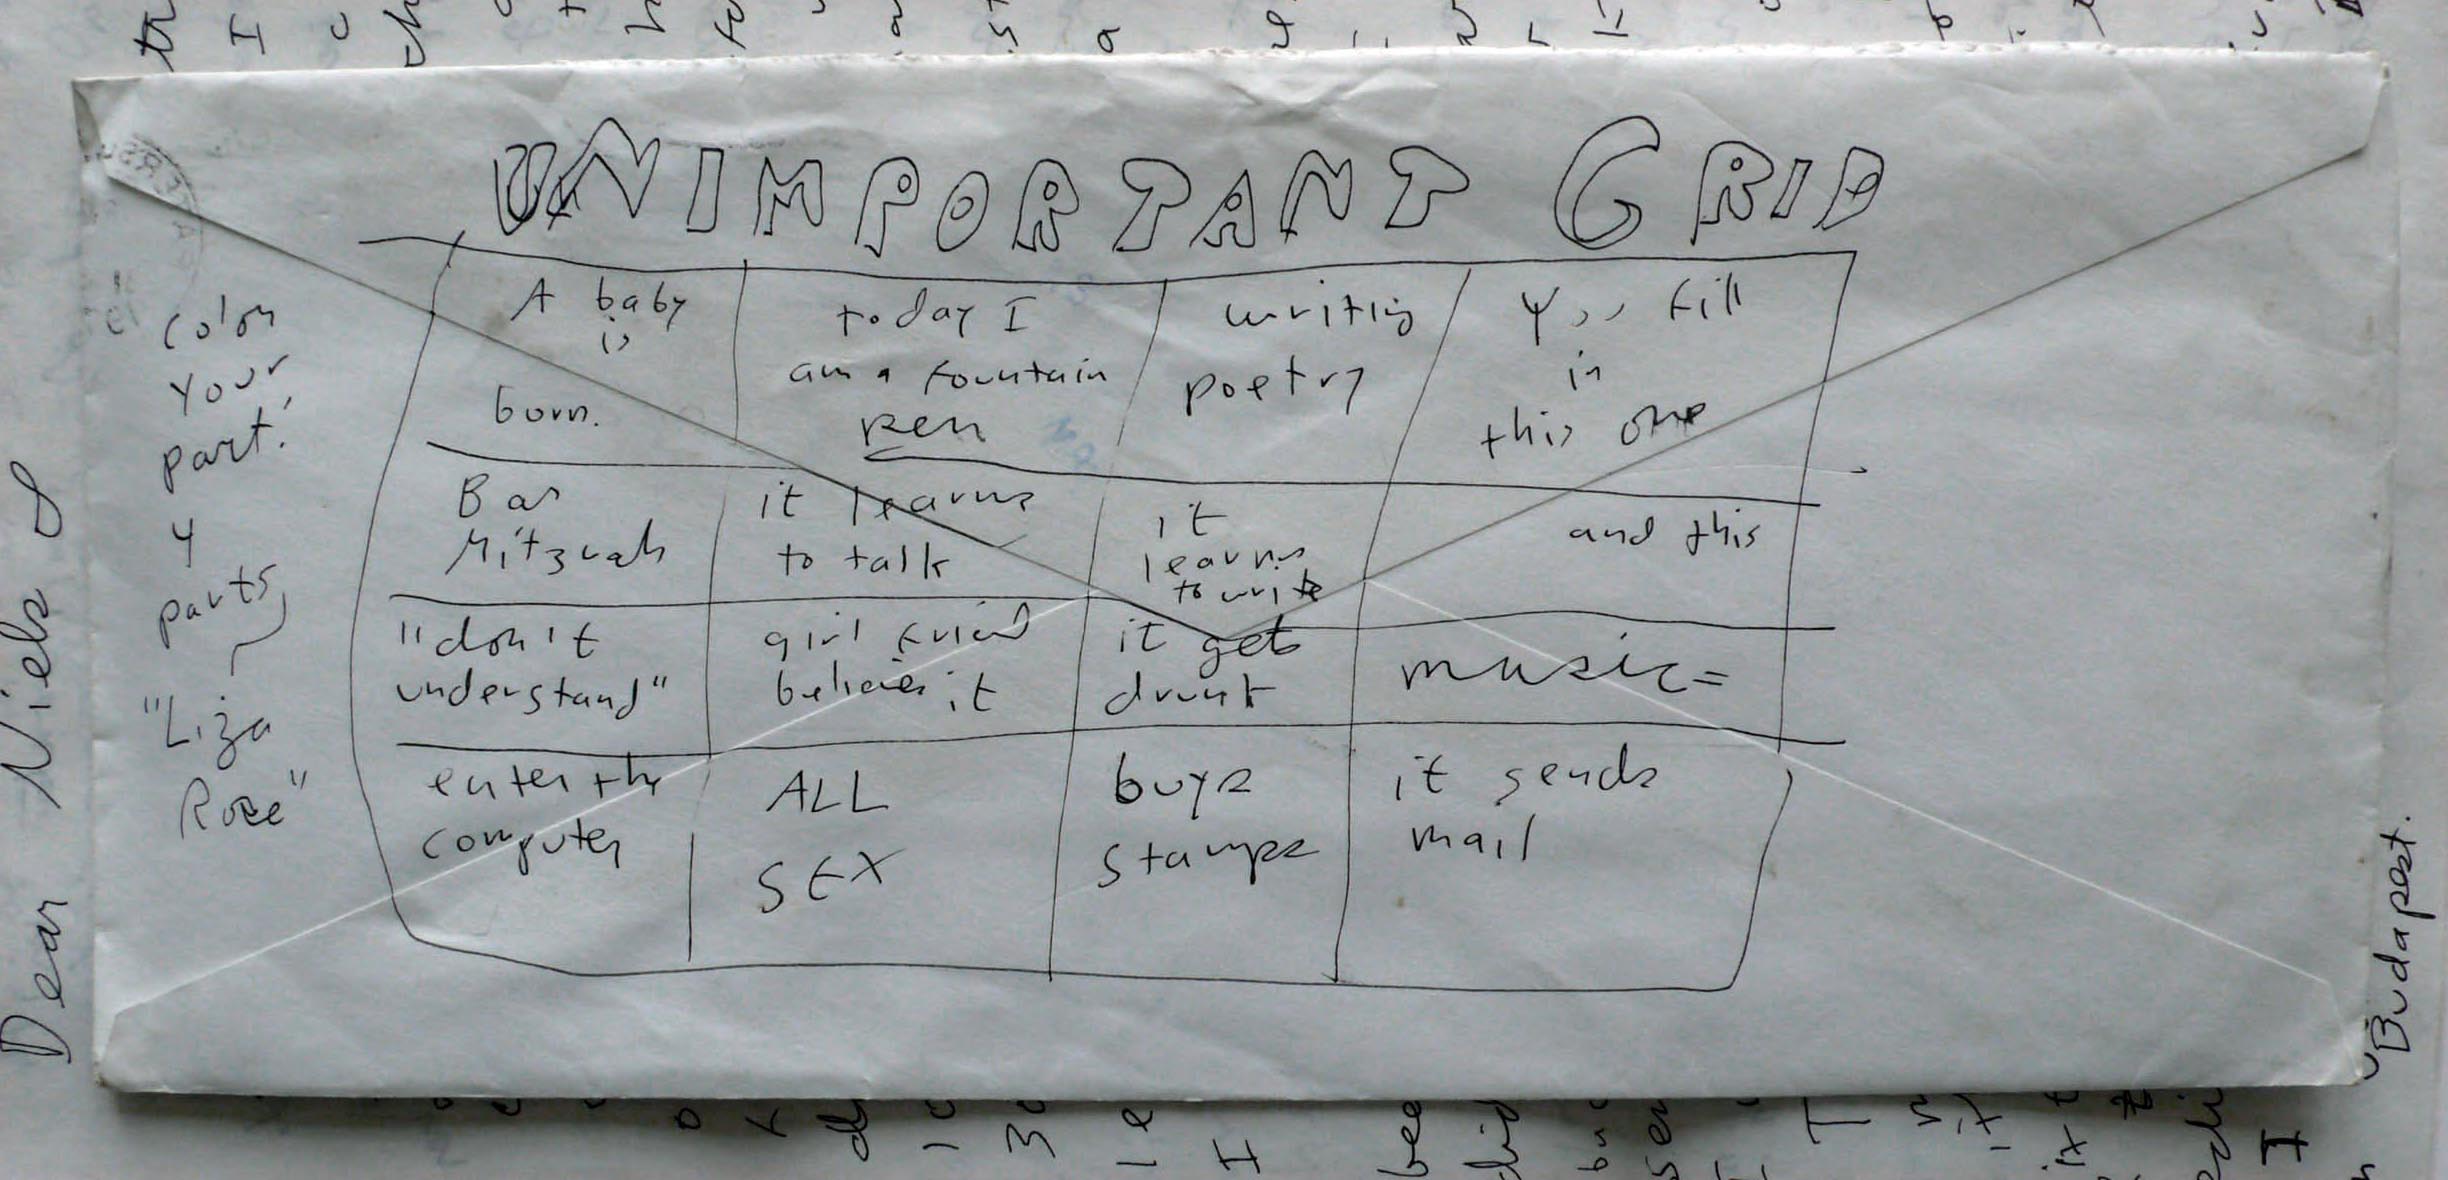 UNIMPORTANT GRID
color
your
part!
4
parts
"Liza
Rose"
A baby
is
born.
today I
am a fountain
pen
writing
poetry
You fill
in
this one
Bar
Mitzvah
it learns
to talk
it
learns
to write
and this
"don't
understand"
girl friend
believes it
it gets
drunk
music=
enter the
computer
ALL
SEX
buys
stamps
it sends
mail
Dear Niels &
Budapest.